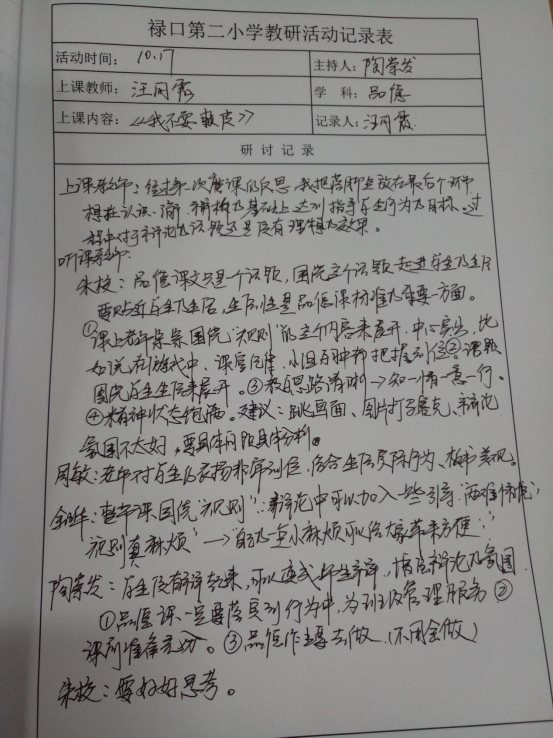 禄口第二小学教研活动记录表
活动时间： 10.17 主持人：陶荣发
上课教师： 汪同霞 学 科：品德
上课内容：《我不要 》 记录人：汪同霞
研 讨 记 录
上课教师：经过第一次磨课的反思，我把落脚点放在最后个环节
想在认识、 的基础上达到指导学生行为的目标。过
程中对于辩论的话题还是没有理想的效果。
听课教师：
朱校：品德课文只是个话题，围绕这个话题走进学生的生活
要贴近学生的生活，生活性是品德课标准的重要一方面。
①课上老师紧紧围绕"规则"的这个内容来展开，中心突出，比
如说在游戏中、课堂纪律、 把握到位②课题
围绕学生生活来展开。③教学思路清晰→知一情一意一行。
④精神状态饱满。建议：跳画面、图片打马赛克、辩论
氛围不太好，要具体问题具体分析。
周敏：老师对学生的表扬非常到位，结合生活实际行为、板书美观。
：整节课围绕"规则"：辩论中可以加入一些引导，"两难情境"
"规则真麻烦"→"自己的一点小麻烦可以给大家带来方便"
陶荣发：学生没有辩论起来，可以变式 ， 辩论的氛围
①品德课一定要落实到行为中，为班级管理服务②
课前准备充分。③品德作 要去做（不用全做）
朱校：要好好思考。